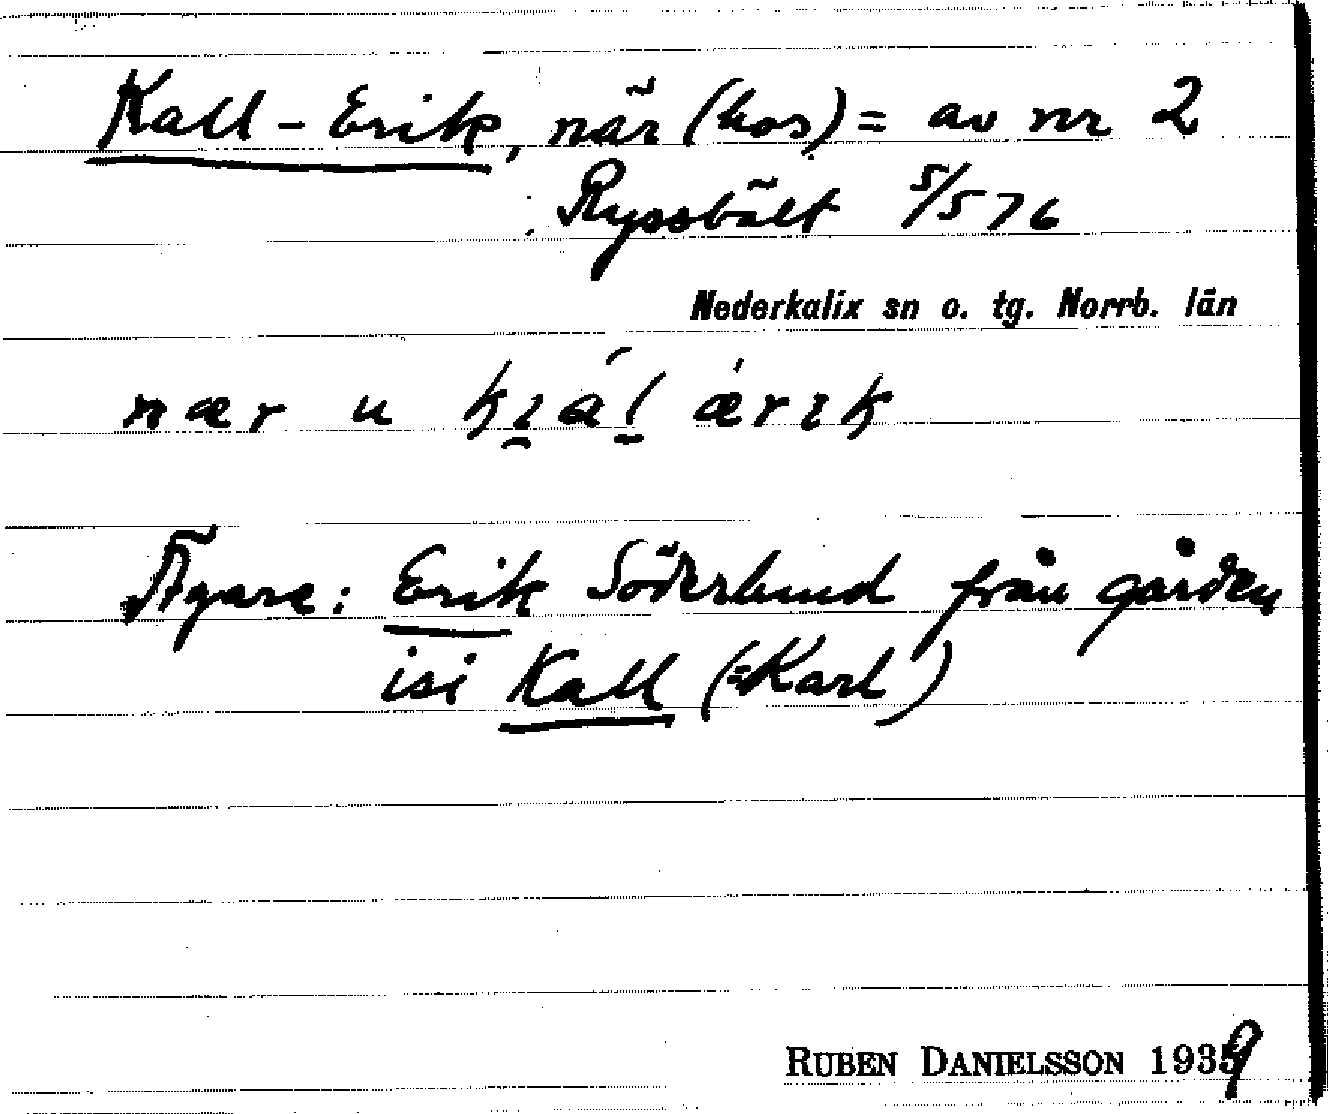 Kall-Erik, när (hos) = av nr 2
Ryssbält 5/576
Nederkalix sn o. tg. Norrb. län
nær u
Ägare: Erik Söderlund från gården
isi Kall (=Karl)
RUBEN DANIELSSON 1939